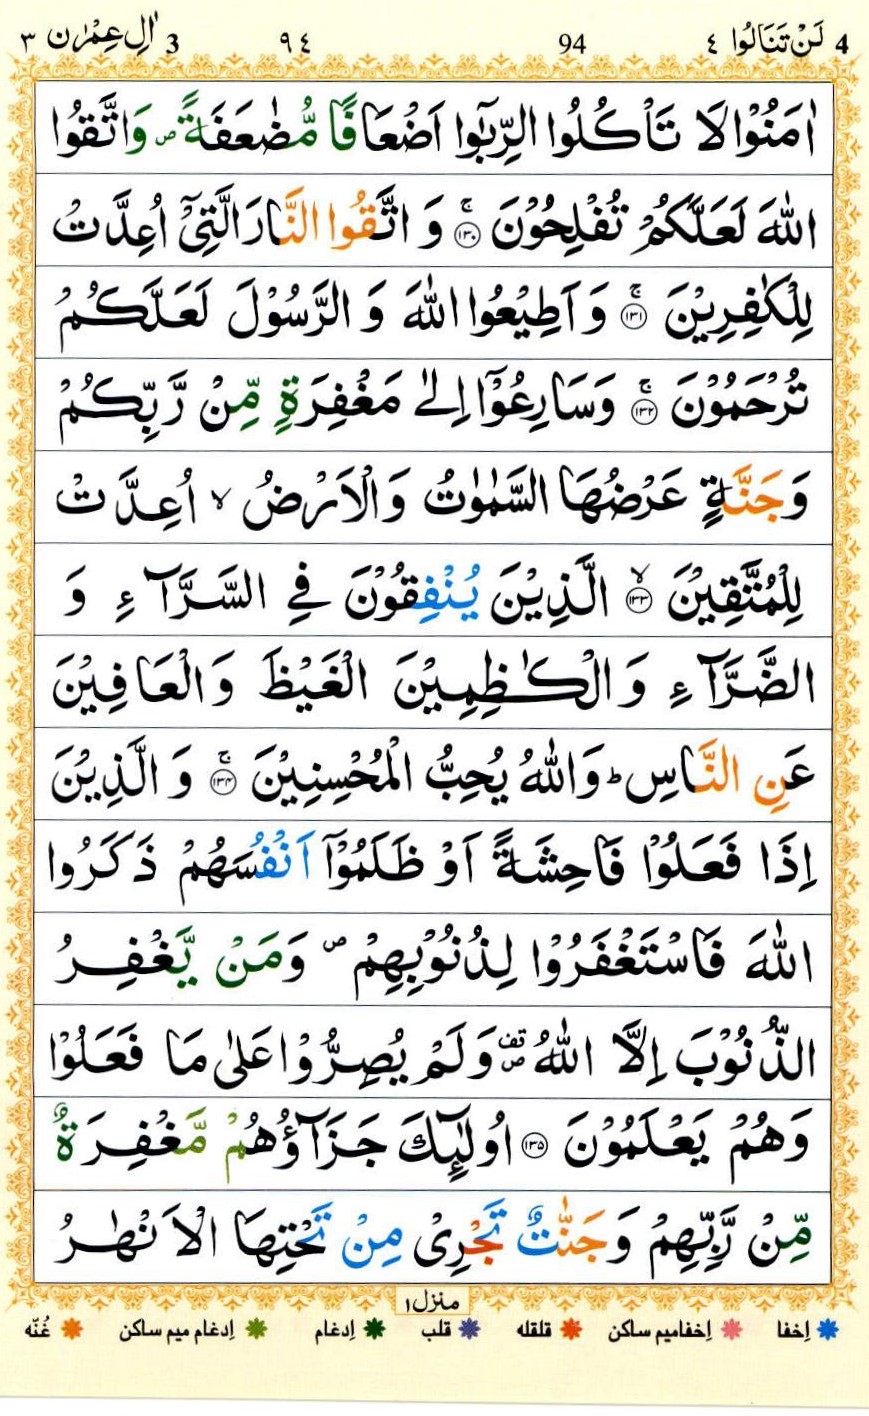 4 لَنْ تَنَالُوا ٤ 94 ٩٤ 3 اٰلِ عِمْرٰن ٣
اٰمَنُوْا لَا تَاْكُلُوا الرِّبٰۤوا اَضْعَافًا مُّضٰعَفَةً ۪ وَاتَّقُوا
اللّٰهَ لَعَلَّكُمْ تُفْلِحُوْنَ ۚ‏﴿۱۳۰﴾ وَ اتَّقُوا النَّارَ الَّتِیْۤ اُعِدَّتْ
لِلْكٰفِرِیْنَ ۚ‏﴿۱۳۱﴾ وَ اَطِیْعُوا اللّٰهَ وَ الرَّسُوْلَ لَعَلَّكُمْ
تُرْحَمُوْنَ ۚ‏﴿۱۳۲﴾ وَسَارِعُوْۤا اِلٰی مَغْفِرَةٍ مِّنْ رَّبِّكُمْ
وَجَنَّةٍ عَرْضُهَا السَّمٰوٰتُ وَالْاَرْضُ ۙ اُعِدَّتْ
لِلْمُتَّقِیْنَ ۙ‏﴿۱۳۳﴾ الَّذِیْنَ یُنْفِقُوْنَ فِی السَّرَّآءِ وَ
الضَّرَّآءِ وَ الْكٰظِمِیْنَ الْغَیْظَ وَ الْعَافِیْنَ
عَنِ النَّاسِ ؕ وَاللّٰهُ یُحِبُّ الْمُحْسِنِیْنَ ۚ‏﴿۱۳۴﴾ وَ الَّذِیْنَ
اِذَا فَعَلُوْا فَاحِشَةً اَوْ ظَلَمُوْۤا اَنْفُسَهُمْ ذَكَرُوا
اللّٰهَ فَاسْتَغْفَرُوْا لِذُنُوْبِهِمْ ۪ وَمَنْ یَّغْفِرُ
الذُّنُوْبَ اِلَّا اللّٰهُ ۪۫ وَلَمْ یُصِرُّوْا عَلٰی مَا فَعَلُوْا
وَهُمْ یَعْلَمُوْنَ ﴿۱۳۵﴾ اُولٰٓئِكَ جَزَآؤُهُمْ مَّغْفِرَةٌ
مِّنْ رَّبِّهِمْ وَجَنّٰتٌ تَجْرِیْ مِنْ تَحْتِهَا الْاَنْهٰرُ
منزل ۱
اِخفا اِخفامیم ساكن قلقله قلب اِدغام اِدغام میم ساكن غُنّه